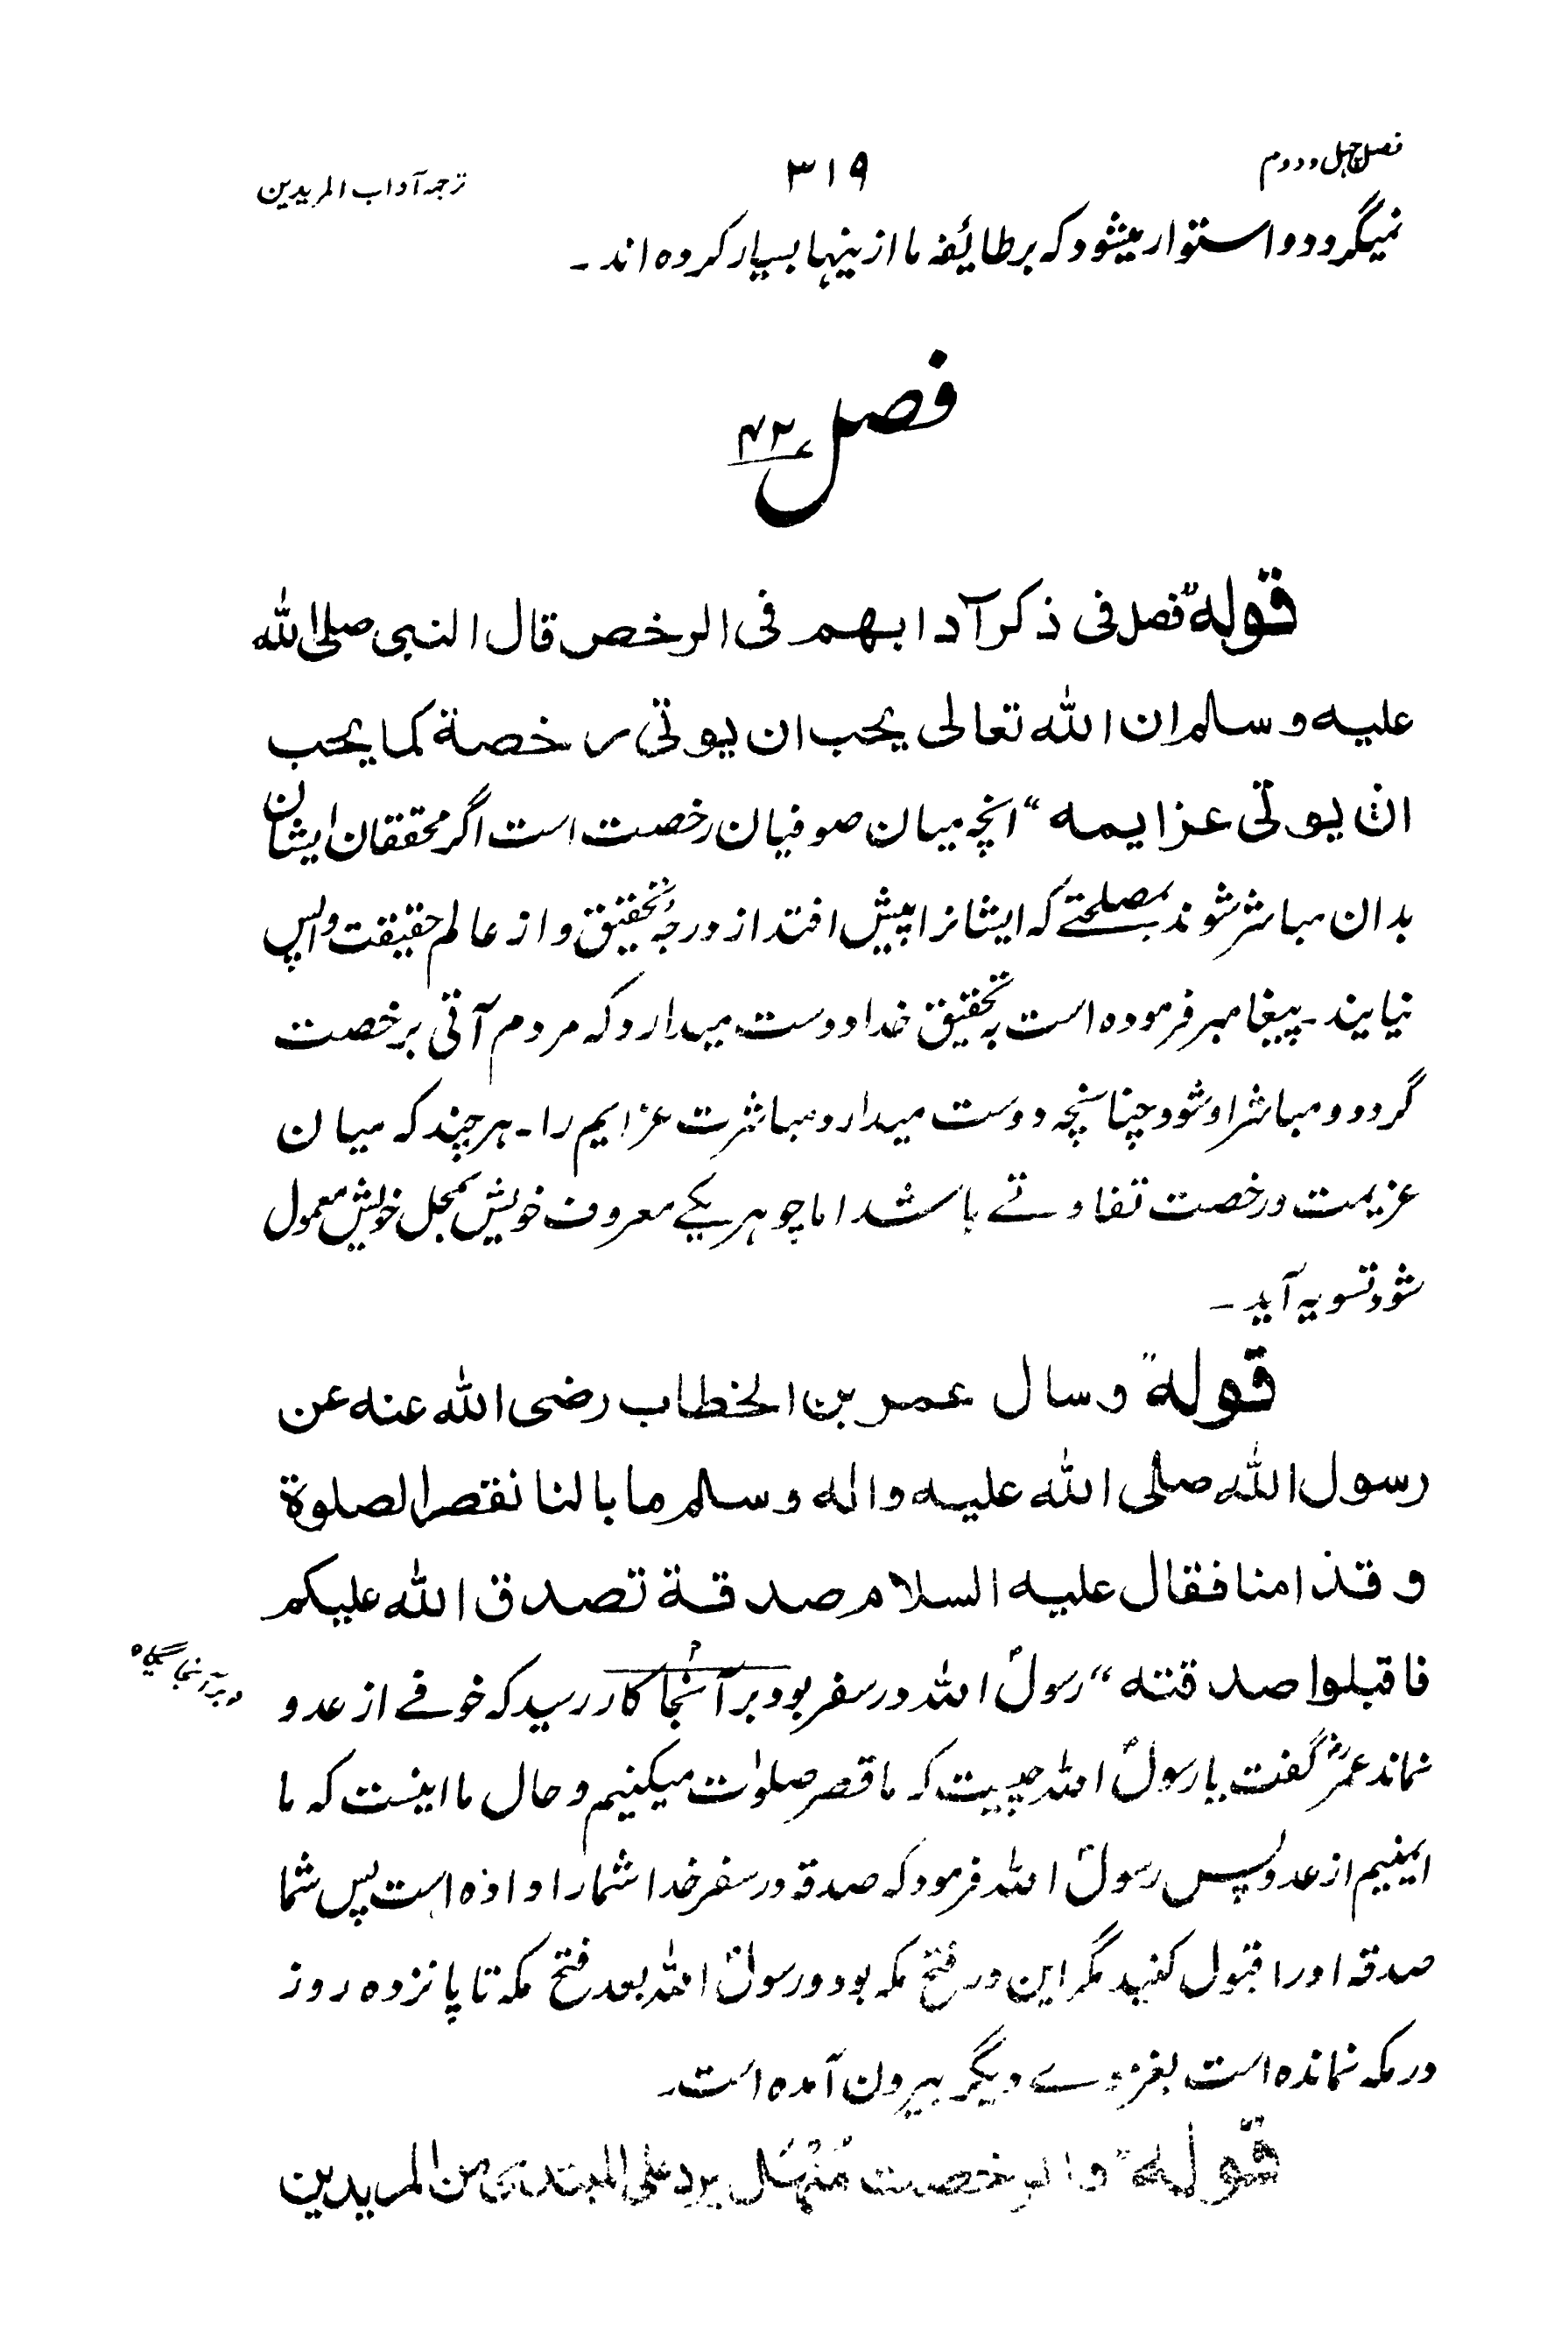 فصل چہل و دوم
۳۱۹
ترجمہ آداب المریدین
نمیگردد و استوار میشود که بر طائیفه ما ازینہا بسیار کرده اند ۔
فصل ۴۲
قوله" فصل فی ذکر آدابهم فی الرخص قال النبی صلی الله
علیه و سلم ان الله تعالی یحب ان یوتی رخصة کما یحب
ان یوتی عزایمه" انچه میان صوفیان رخصت است اگر محققان ایشان
بدان مباشر شوند بمصلحتے که ایشانرا پیش افتد از درجۂ تحقیق و از عالم حقیقت واپس
نیایند ۔ پیغامبر فرموده است به تحقیق خدا دوست میدارد که مردم آتی برخصت
گردد و مباشر او شود چنانچه دوست میدارد مباشرت عزایم را ۔ هر چند که میان
عزیمت و رخصت تفاوتے باشد اما چو هر یکے معروف خویش بمحل خویش معمول
شود تسویه آید ۔
قوله" و سال عمر بن الخطاب رضی الله عنه عن
رسول الله صلی الله علیه و اله و سلم ما بالنا نقصر الصلوة
و قد امنا فقال علیه السلام صدقة تصدق الله علیکم
فاقبلوا صدقته" رسولؐ الله در سفر بود بر آنجا کار رسید که خوفے از عدو
و بر آنجایگاه
نماند عمرؓ گفت یا رسولؐ الله چیست که ما قصر صلوٰت میکنیم و حال ما اینست که ما
ایمنیم از عدو پس رسولؐ الله فرمود که صدقه در سفر خدا شما را داده است پس شما
صدقه او را قبول کنید مگر این در فتح مکه بود و رسولؐ الله بعد فتح مکه تا پانزده روز
در مکه نمانده است بغزوے دیگر بیرون آمده است۔
قوله" و الرخصت مُنْهَل یرد علی المبتدی من المریدین